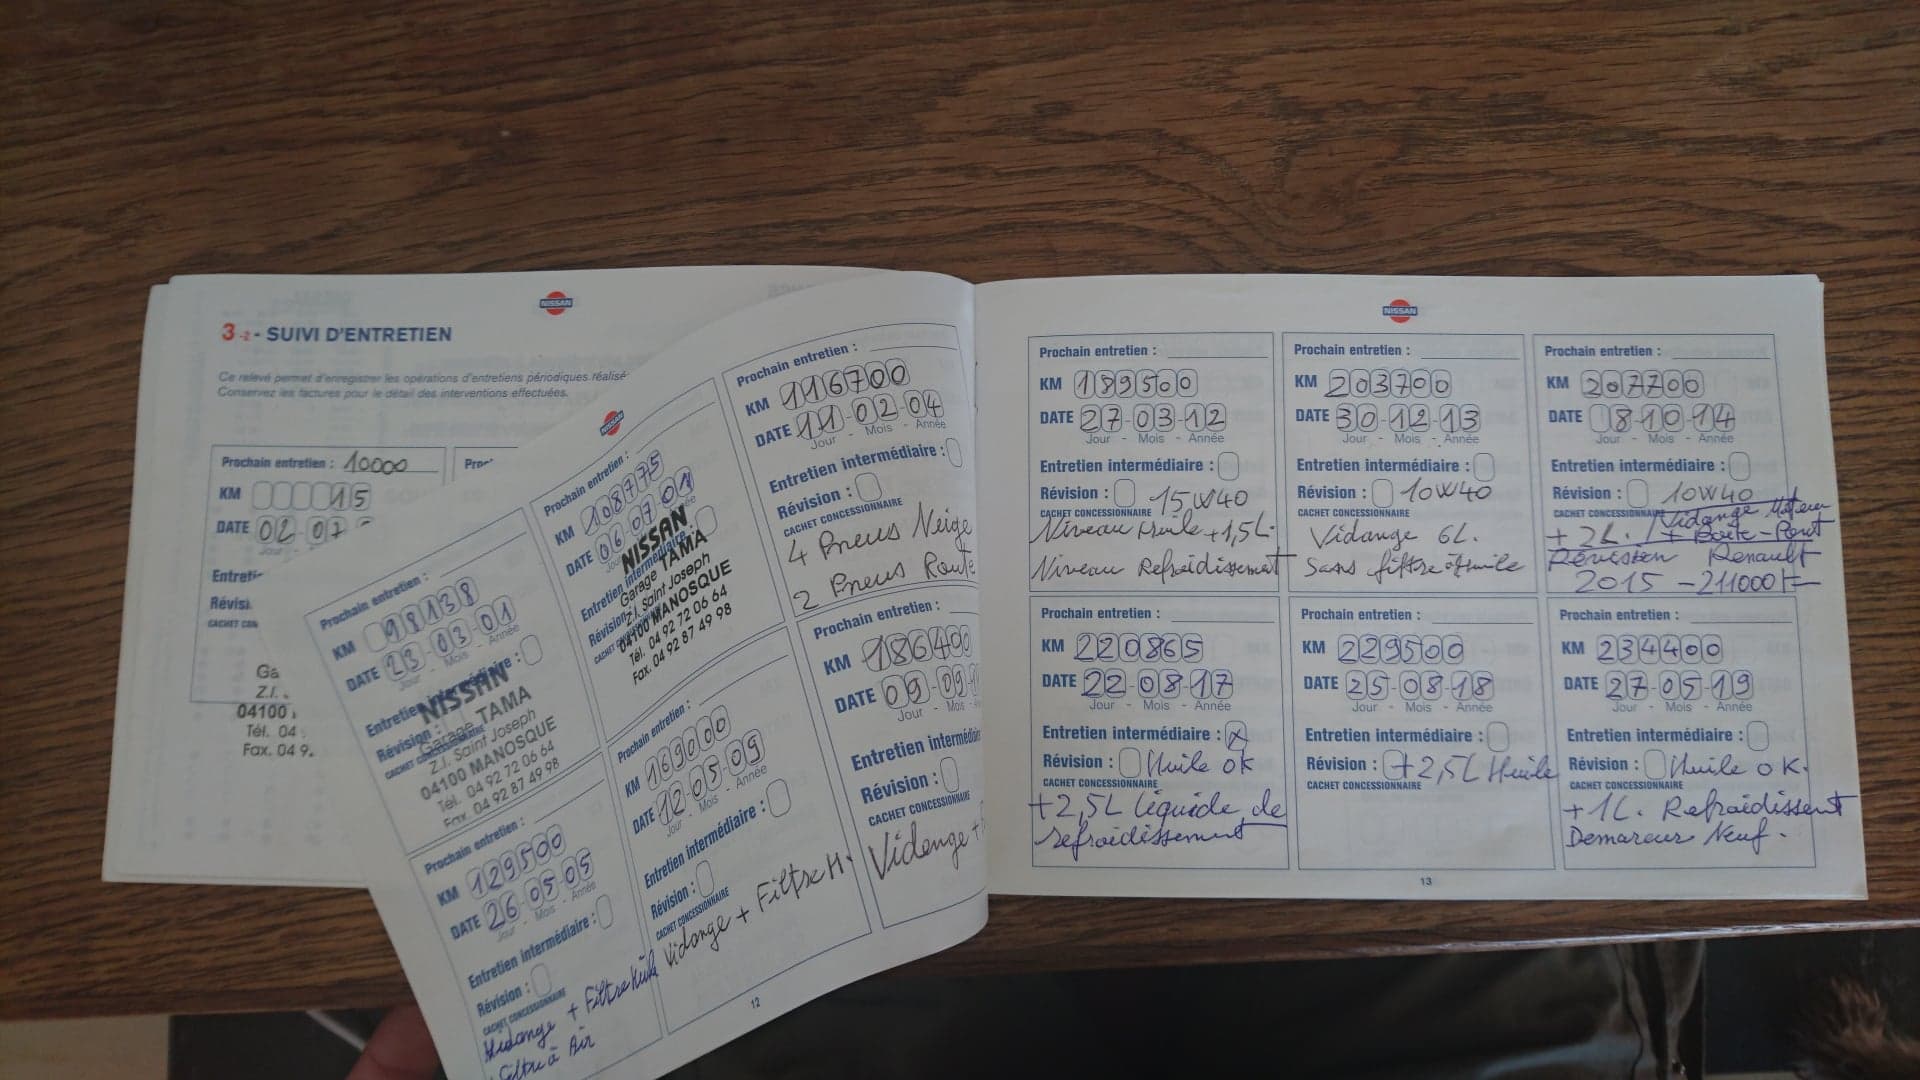 NISSAN
3-2 - SUIVI D'ENTRETIEN
Ce relevé permet d'enregistrer les opérations d'entretiens périodiques réalisé
Conservez les factures pour le détail des interventions effectuées.
Prochain entretien : 10000
KM 15
DATE 02 07
Entreti
Révisi
CACHET CON
Ga
Z.I.
04100
Tél. 04
Fax. 04 9.
NISSAN
Prochain entretien :
KM 98138
DATE 23-03-01
Jour - Mois - Année
Entretien intermédiaire :
Révision :
CACHET CONCESSIONNAIRE
NISSAN
Garage TAMA
Z.I. Saint Joseph
04100 MANOSQUE
Tél. 04 92 72 06 64
Fax. 04 92 87 49 98
Prochain entretien :
KM 108775
DATE 06-07-01
Entretien intermédiaire
Révision
CACHET CONCESSIONNAIRE
NISSAN
Garage TAMA
Z.I. Saint Joseph
04100 MANOSQUE
Tél. 04 92 72 06 64
Fax. 04 92 87 49 98
Prochain entretien :
KM 116700
DATE 11-02-04
Jour - Mois - Année
Entretien intermédiaire :
Révision :
CACHET CONCESSIONNAIRE
4 Pneus Neige
2 Pneus Route
Prochain entretien :
KM 129500
DATE 26-05-05
Jour - Mois - Année
Entretien intermédiaire :
Révision :
CACHET CONCESSIONNAIRE
Vidange + Filtre Huile
Filtre à Air
Prochain entretien :
KM 169000
DATE 12-05-09
Jour - Mois - Année
Entretien intermédiaire :
Révision :
CACHET CONCESSIONNAIRE
Vidange + Filtre H.
Prochain entretien :
KM 186400
DATE 09-09
Jour - Mois - A
Entretien intermédi
Révision :
CACHET CONCESSIONNAIRE
Vidange +
12
NISSAN
Prochain entretien :
KM 189500
DATE 27-03-12
Jour - Mois - Année
Entretien intermédiaire :
Révision : 15W40
CACHET CONCESSIONNAIRE
Niveau Huile +1,5L.
Niveau Refroidissement
Prochain entretien :
KM 203700
DATE 30-12-13
Jour - Mois - Année
Entretien intermédiaire :
Révision : 10W40
CACHET CONCESSIONNAIRE
Vidange 6L.
Sans filtre à Huile
Prochain entretien :
KM 207700
DATE 8-10-14
Jour - Mois - Année
Entretien intermédiaire :
Révision : 10W40
CACHET CONCESSIONNAIRE Vidange Moteur
+ 2L. / + Boite-Pont
Révision Renault
2015 - 211000 K
Prochain entretien :
KM 220865
DATE 22-08-17
Jour - Mois - Année
Entretien intermédiaire : X
Révision : Huile OK
CACHET CONCESSIONNAIRE
+2,5L liquide de
refroidissement
Prochain entretien :
KM 229500
DATE 25-08-18
Jour - Mois - Année
Entretien intermédiaire :
Révision : +2,5L Huile
CACHET CONCESSIONNAIRE
Prochain entretien :
KM 234400
DATE 27-05-19
Jour - Mois - Année
Entretien intermédiaire :
Révision : Huile OK.
CACHET CONCESSIONNAIRE
+1L. Refroidissent
Demareur Neuf.
13